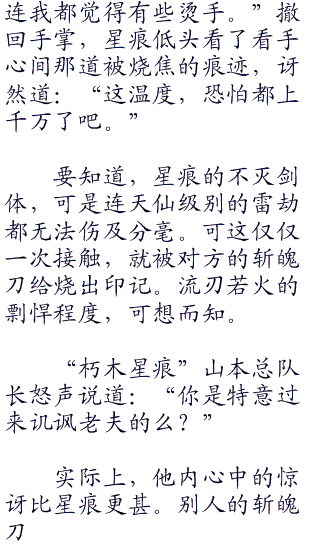 连我都觉得有些烫手。”撤
回手掌，星痕低头看了看手
心间那道被烧焦的痕迹，讶
然道：“这温度，恐怕都上
千万了吧。”
要知道，星痕的不灭剑
体，可是连天仙级别的雷劫
都无法伤及分毫。可这仅仅
一次接触，就被对方的斩魄
刀给烧出印记。流刃若火的
剽悍程度，可想而知。
“朽木星痕”山本总队
长怒声说道：“你是特意过
来讥讽老夫的么？”
实际上，他内心中的惊
讶比星痕更甚。别人的斩魄
刀